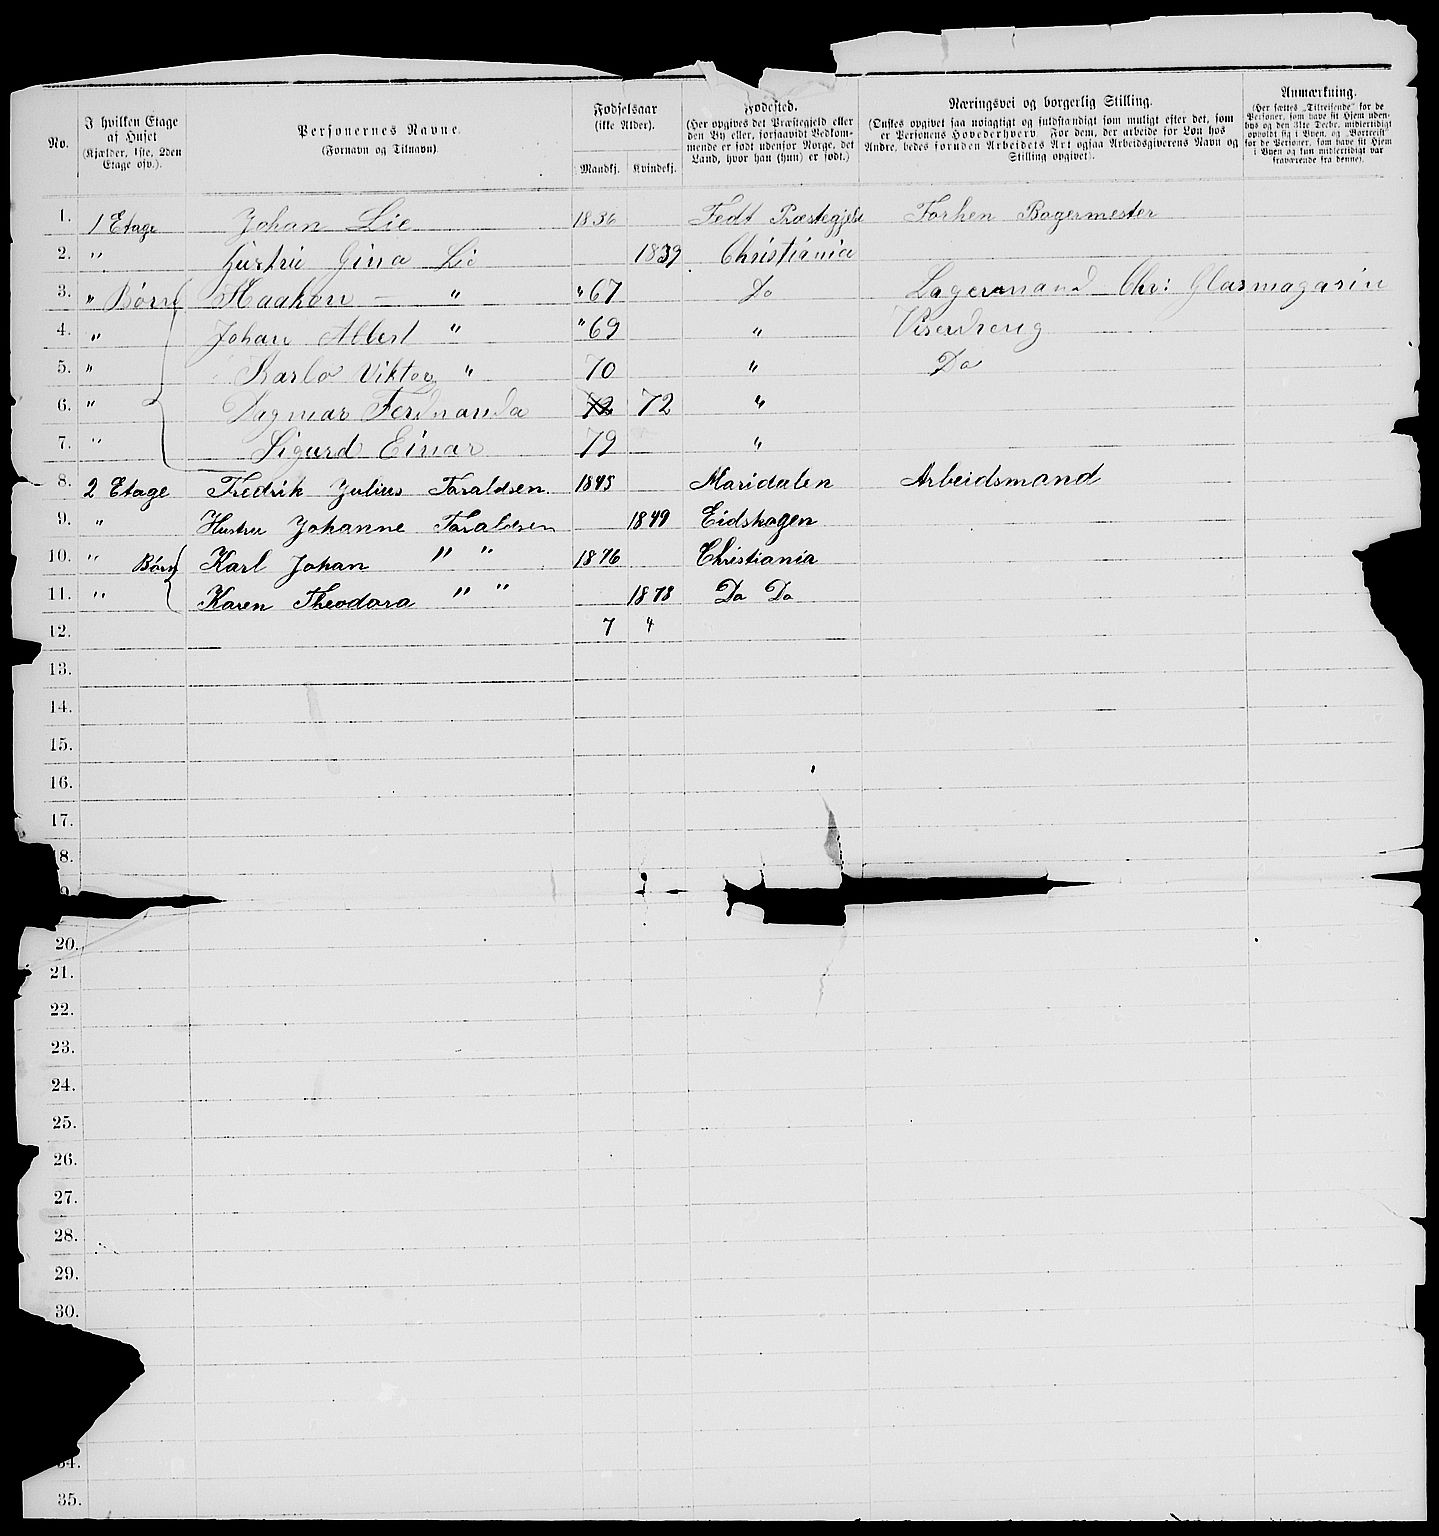 No.
I hvilken Etage af Huset (Kjælder, 1ste, 2den Etage osv.).
Personernes Navne. (Fornavn og Tilnavn)
Fødselsaar (ikke Alder). Mandkj. Kvindekj.
Fødested. (Her opgives det Præstegjeld eller den By eller, forsaavidt Vedkommende er født udenfor Norge, det Land, hvor han (hun) er født.)
Næringsvei og borgerlig Stilling. (Ønskes opgivet saa nøiagtigt og fuldstændigt som muligt efter det, som er Personens Hovederhverv. For dem, der arbeide for Løn hos Andre, bedes foruden Arbeidets Art ogsaa Arbeidsgiverens Navn og Stilling opgivet).
Anmærkning. (Her sættes „Tilreisende" for de Personer, som have sit Hjem udenbys og den 31te Decbr. midlertidigt opholdt sig i Byen, og „Bortreist" for de Personer, som have sit Hjem i Byen og kun midlertidigt var fraværende fra denne).
1. 1 Etage Johan Lie 1836 Fedt Præstegjeld Forhen Bagermester
2. " Hustru Gina Lie 1839 Christiania
3. " Børn Haakon — " " 67 Do Lagermand Chr: Glasmagasin
4. " Johan Albert " " 69 " Viserdreng
5. " Karlo Viktor " 70 " Do
6. " Dagmar Ferdinanda 72 72 "
7. " Sigurd Einar 79 "
8. 2 Etage Fredrik Julius Taraldsen. 1845 Maridalen Arbeidsmand
9. " Hustru Johanne Taraldsen 1849 Eidskogen
10. " Børn Karl Johan " " 1876 Christiania
11. " Karen Theodora " " 1878 Do Do
12. 7 4
13.
14.
15.
16.
17.
18.
20.
21.
22.
23.
24.
25.
26.
27.
28.
29.
30.
34.
35.